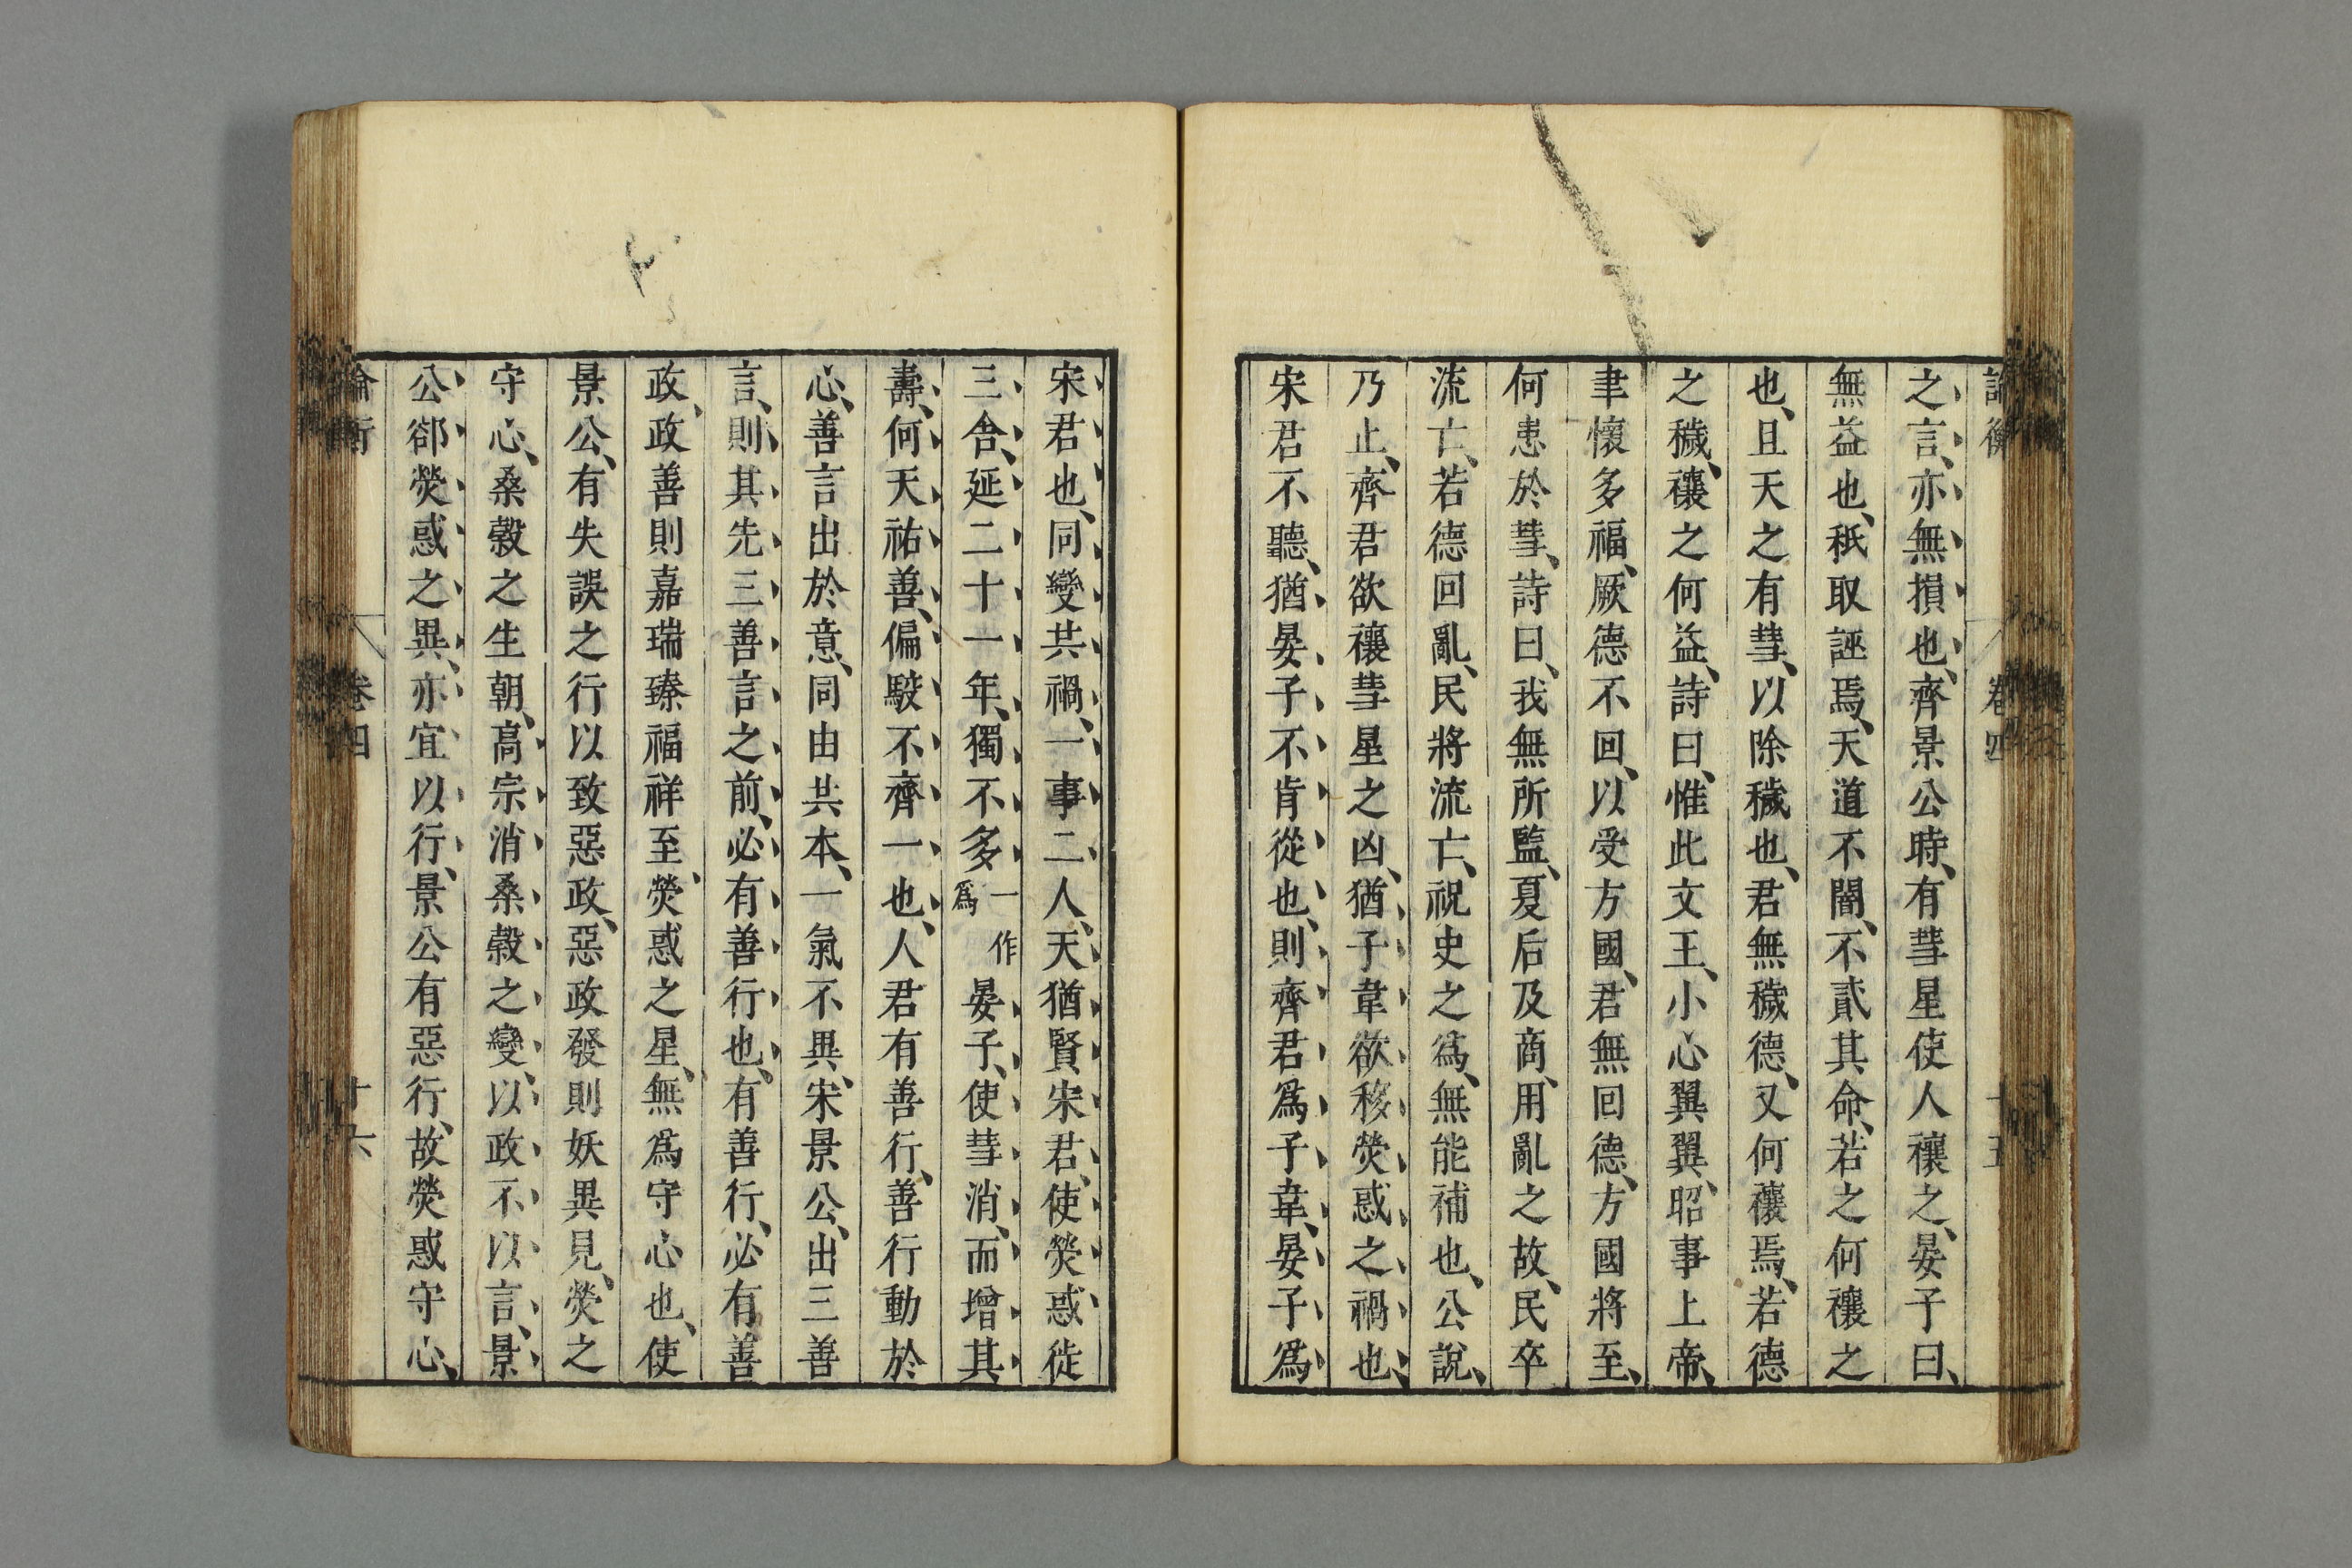 論衡 卷四 十五
之言、亦無損也、齊景公時、有彗星使人禳之、晏子曰、
無益也、秖取誣焉、天道不闇、不貳其命、若之何禳之
也、且天之有彗、以除穢也、君無穢德、又何禳焉、若德
之穢、禳之何益、詩曰、惟此文王、小心翼翼、昭事上帝、
聿懷多福、厥德不回、以受方國、君無回德、方國將至、
何患於彗、詩曰、我無所監、夏后及商、用亂之故、民卒
流亡、若德回亂、民將流亡、祝史之爲、無能補也、公說、
乃止、齊君欲禳彗星之凶、猶子韋欲移熒惑之禍也、
宋君不聽、猶晏子不肯從也、則齊君爲子韋、晏子爲
宋君也、同變共禍、一事二人、天猶賢宋君、使熒惑徙
三舍、延二十一年、獨不多一作爲晏子、使彗消、而增其
壽、何天祐善、偏駁不齊一也、人君有善行、善行動於
心、善言出於意、同由共本、一氣不異、宋景公、出三善
言、則其先三善言之前、必有善行也、有善行、必有善
政、政善則嘉瑞臻福祥至、熒惑之星、無爲守心也、使
景公、有失誤之行以致惡政、惡政發則妖異見、熒之
守心、桑穀之生朝、高宗消桑穀之變、以政不以言、景
公郤熒惑之異、亦宜以行、景公有惡行、故熒惑守心、
論衡 卷四 十六